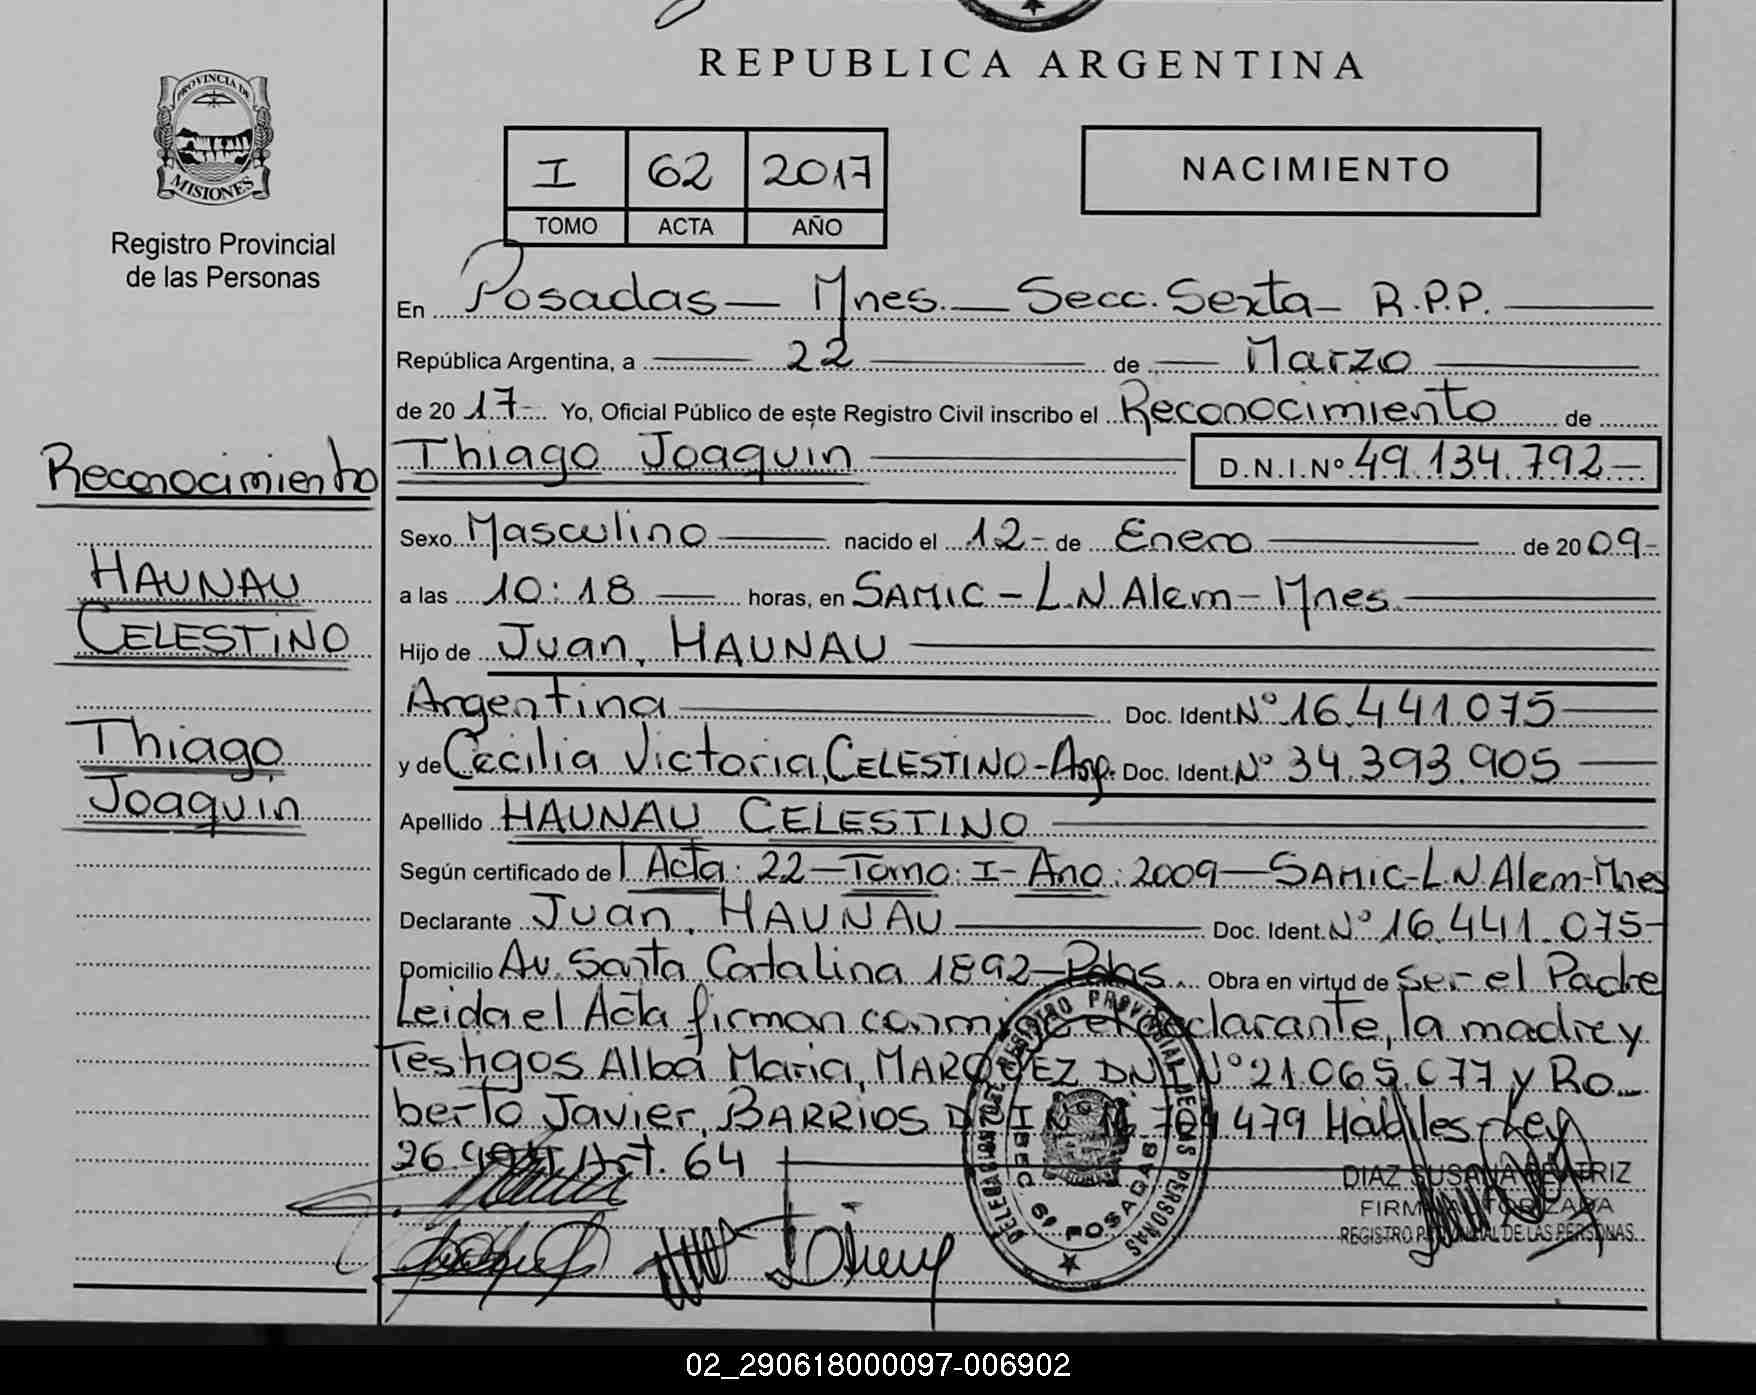 REPUBLICA ARGENTINA
PROVINCIA DE
MISIONES
Registro Provincial
de las Personas
I 62 2017
TOMO ACTA AÑO
NACIMIENTO
En Posadas - Mnes. - Secc. Sexta - R.P.P.
República Argentina, a 22 de Marzo
de 20 17 - Yo, Oficial Público de este Registro Civil inscribo el Reconocimiento de
Thiago Joaquin D.N.I.Nº 49.134.792 -
Reconocimiento
HAUNAU
CELESTINO
Thiago
Joaquin
Sexo Masculino nacido el 12 - de Enero de 20 09 -
a las 10:18 horas, en SAMIC - L.N Alem - Mnes.
Hijo de Juan, HAUNAU
Argentina Doc. Ident. Nº 16.441.075
y de Cecilia Victoria, CELESTINO - Arg. Doc. Ident. Nº 34.393.905
Apellido HAUNAU CELESTINO
Según certificado de Acta: 22 - Tomo: I - Año: 2009 - SAMIC - L.N. Alem - Mnes
Declarante Juan, HAUNAU Doc. Ident. Nº 16.441.075 -
Domicilio Av. Santa Catalina 1892 - Pdas. Obra en virtud de Ser el Padre
Leida el Acta firman conmigo el declarante, la madre y
Testigos Alba Maria, MARQUEZ DNI Nº 21.065.077 y Ro-
berto Javier, BARRIOS 479 Habiles - Ley
26. Art. 64
REGISTRO PROVINCIAL DE LAS PERSONAS
SECC 6ª POSADAS
DIAZ SUSANA BEATRIZ
FIRMA AUTORIZADA
REGISTRO PROVINCIAL DE LAS PERSONAS
02_290618000097-006902